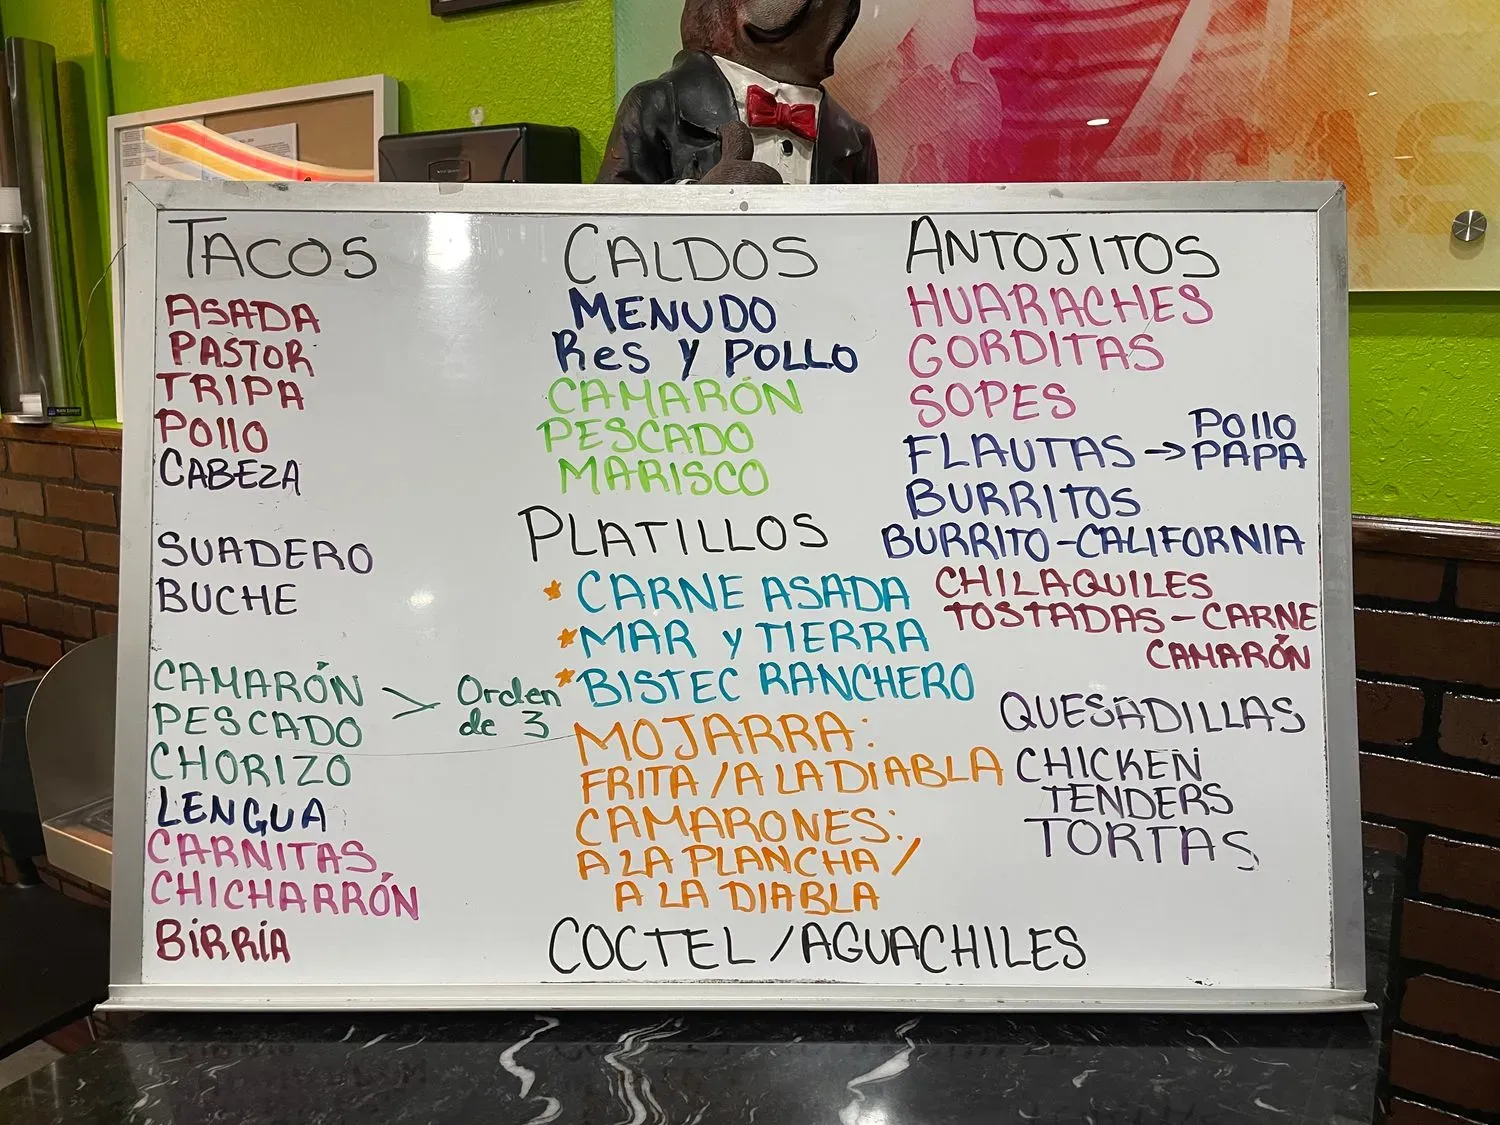 TACOS
ASADA
PASTOR
TRIPA
POllO
CABEZA
SUADERO
BUCHE
CAMARÓN
PESCADO
> Orden
de 3
CHORIZO
LENGUA
CARNITAS
CHICHARRÓN
BiRRiA
CALDOS
MENUDO
Res y POLLO
CAMARÓN
PESCADO
MARISCO
PLATILLOS
* CARNE ASADA
* MAR y TIERRA
* BISTEC RANCHERO
MOJARRA:
FRITA / A LA DIABLA
CAMARONES:
A LA PLANCHA /
A LA DIABLA
COCTEL / AGUACHILES
ANTOJITOS
HUARACHES
GORDITAS
SOPES
FLAUTAS → POllO
PAPA
BURRITOS
BURRITO-CALIFORNIA
CHILAQUILES
TOSTADAS - CARNE
CAMARÓN
QUESADILLAS
CHICKEN
TENDERS
TORTAS